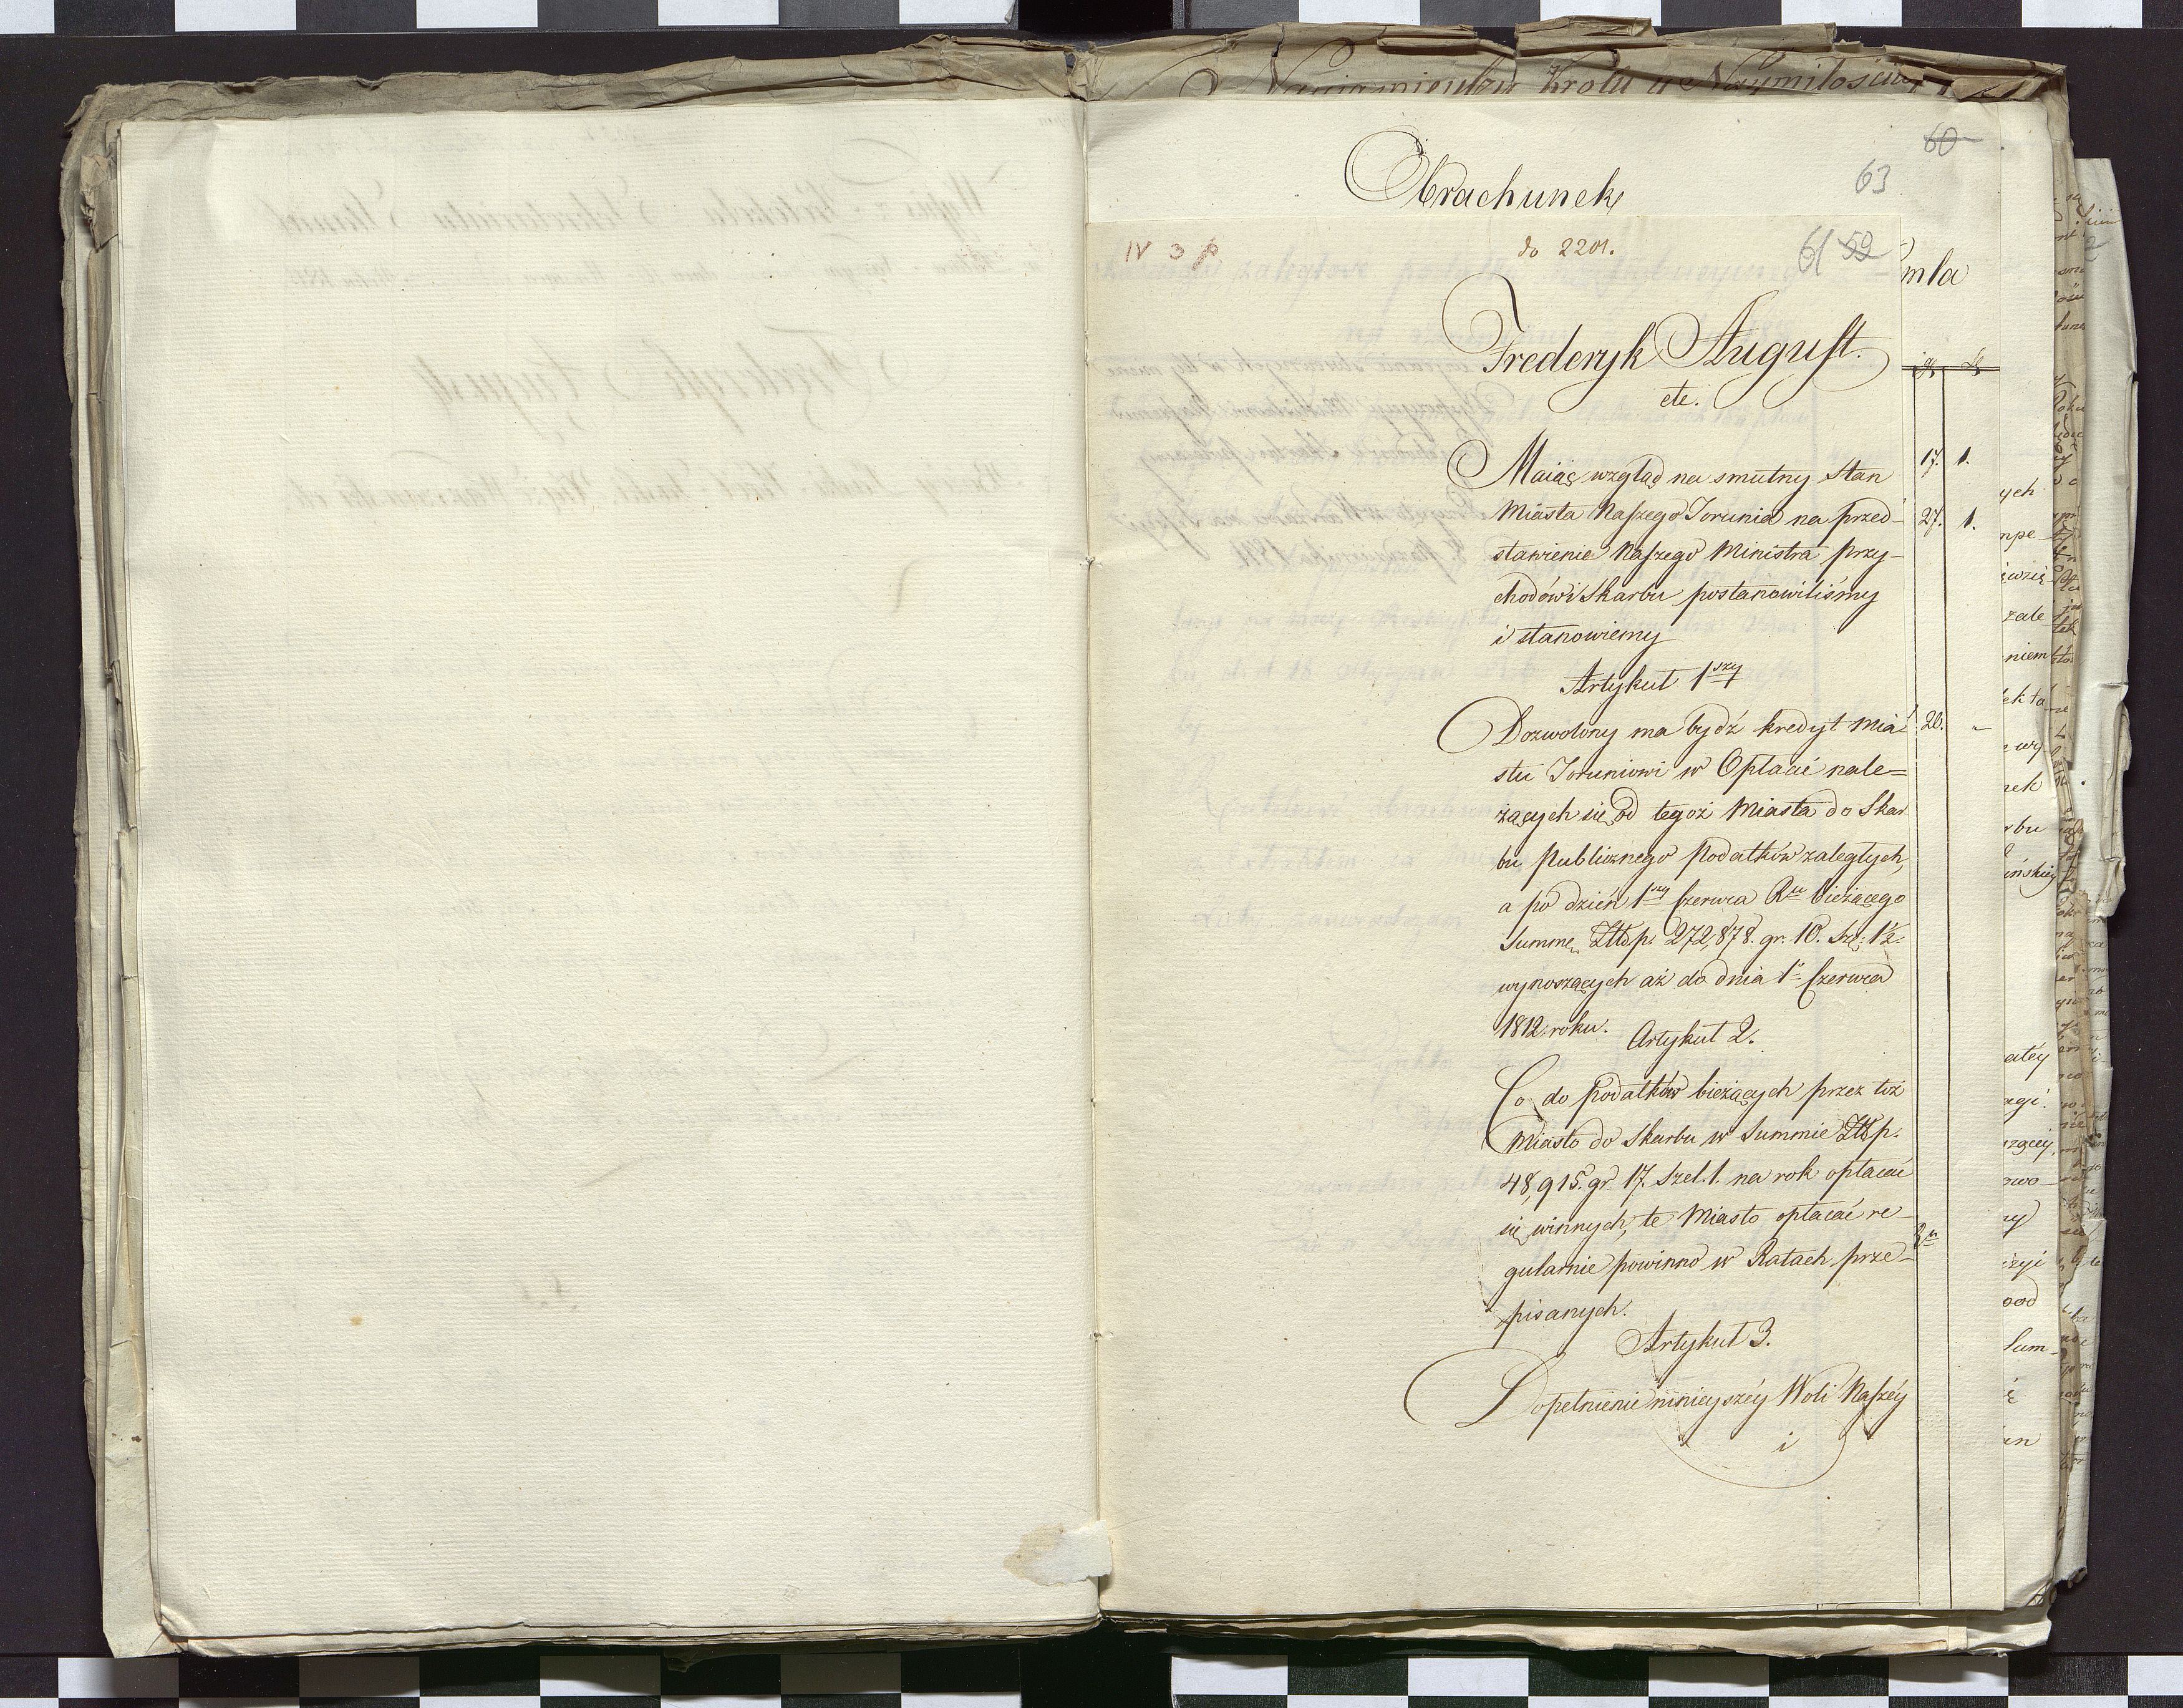 Obrachunek
60
63
IV 3 p.
do 2201.
61 59
mla
Frederyk August.
etc.
Maiąc wzgląd na smutny Stan
Miasta Naszego Torunia na przed-
stawienie Naszego Ministra przy-
chodów i Skarbu postanowiliśmy
i stanowiemy
Artykuł 1szy
Dozwolony ma bydź kredyt Mia-
stu Toruniowi w Opłacie nale=
żących się od tegoż Miasta do Skar
bu Publicznego Podatków zaległych,
a po dzień 1szy Czerwca Ru bieżącego
Summę Złłp. 272,878. gr. 10. Szel. 1½.
wynoszących aż do dnia 1o Czerwca
1812. roku.
Artykuł 2.
Co do Podatków bieżących przez toż
Miasto do Skarbu w Summie Złłp.
48,915. gr. 17. Szel. 1. na rok opłacać
się winnych, te Miasto opłacać re-
gularnie powinno w Ratach prze-
pisanych.
Artykuł 3.
Dopełnienie ninieyszéy Woli Naszéy
i
17. 1.
27. 1.
20. "
ych
npe
zale
niem
nek
rbu
ińskiey
atéy
owo-
ny
Sum-